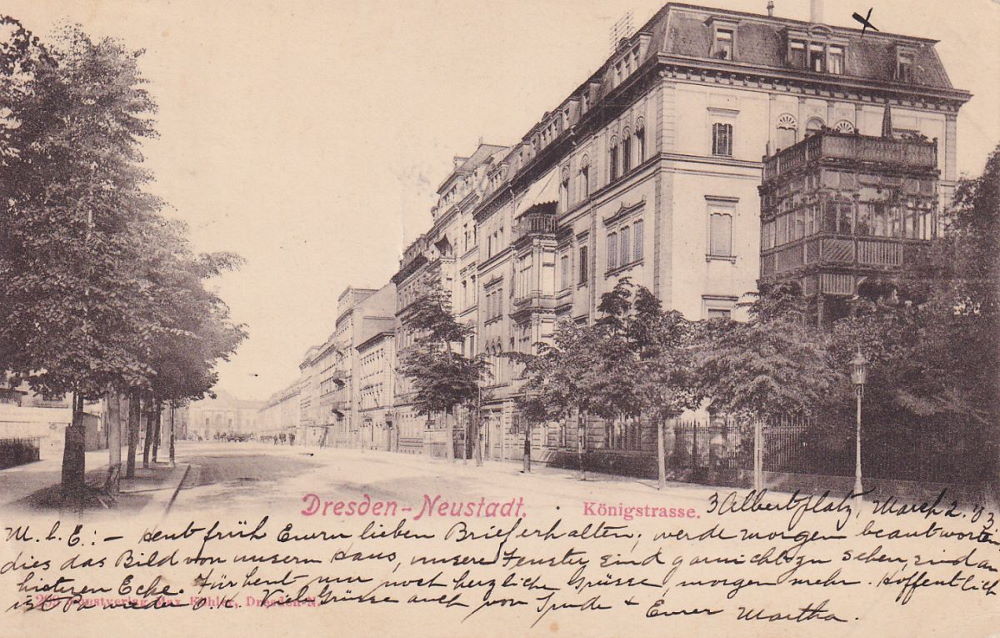 Dresden-Neustadt.
Königstrasse.
3 Albertplatz, March 2. 03
M. l. E.: – Heut früh Euern lieben Brief erhalten; werde morgen beantworten
dies das Bild von unserm Haus, unsere Fenster sind gar nicht zu sehen, sind an
hinteren Ecke. Für heut nur noch herzliche Grüsse, morgen mehr. Hoffentlich
ist Viele Grüsse auch von Trude + Eurer Martha.
Kunstverlag Max Köhler, Dresden-N.